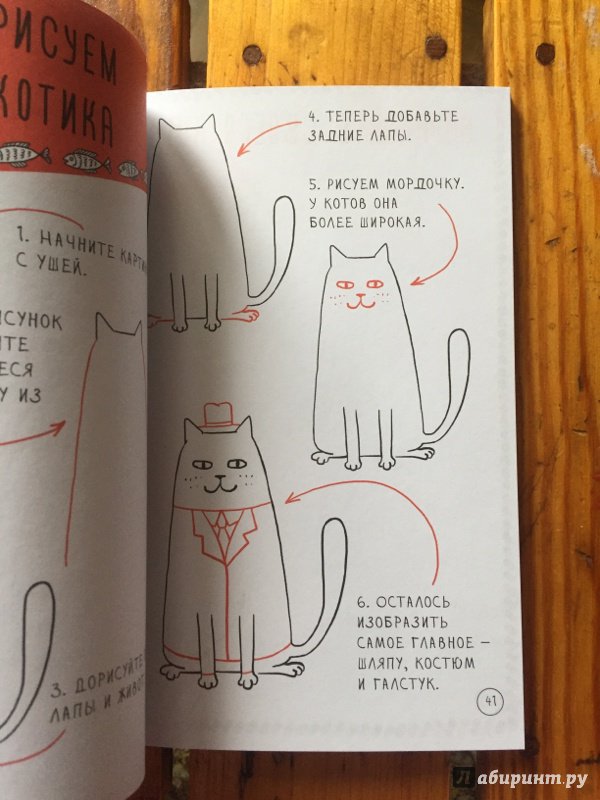 РИСУЕМ
КОТИКА
1. НАЧНИТЕ
С УШЕЙ.
ИЗ
3. ДОРИСУЙТЕ
ЛАПЫ И
4. ТЕПЕРЬ ДОБАВЬТЕ
ЗАДНИЕ ЛАПЫ.
5. РИСУЕМ МОРДОЧКУ.
У КОТОВ ОНА
БОЛЕЕ ШИРОКАЯ.
6. ОСТАЛОСЬ
ИЗОБРАЗИТЬ
САМОЕ ГЛАВНОЕ –
ШЛЯПУ, КОСТЮМ
И ГАЛСТУК.
41
Лабиринт.ру